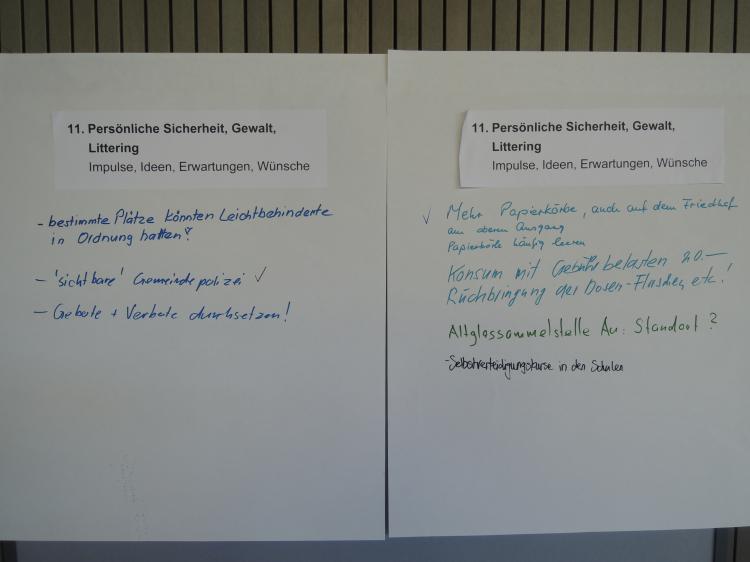 11. Persönliche Sicherheit, Gewalt,
Littering
Impulse, Ideen, Erwartungen, Wünsche
- bestimmte Plätze könnten Leichtbehinderte
in Ordnung halten?
- 'sichtbare' Gemeindepolizei ✓
- Gebote + Verbote durchsetzen!
11. Persönliche Sicherheit, Gewalt,
Littering
Impulse, Ideen, Erwartungen, Wünsche
✓ Mehr Papierkörbe, auch auf dem Friedhof
am oberen Ausgang
Papierkörbe häufig leeren
Konsum mit Gebühr belasten 20.—
Rückbringung der Dosen-Flaschen, etc.!
Altglassammelstelle Au: Standort?
-Selbstverteidigungskurse in den Schulen